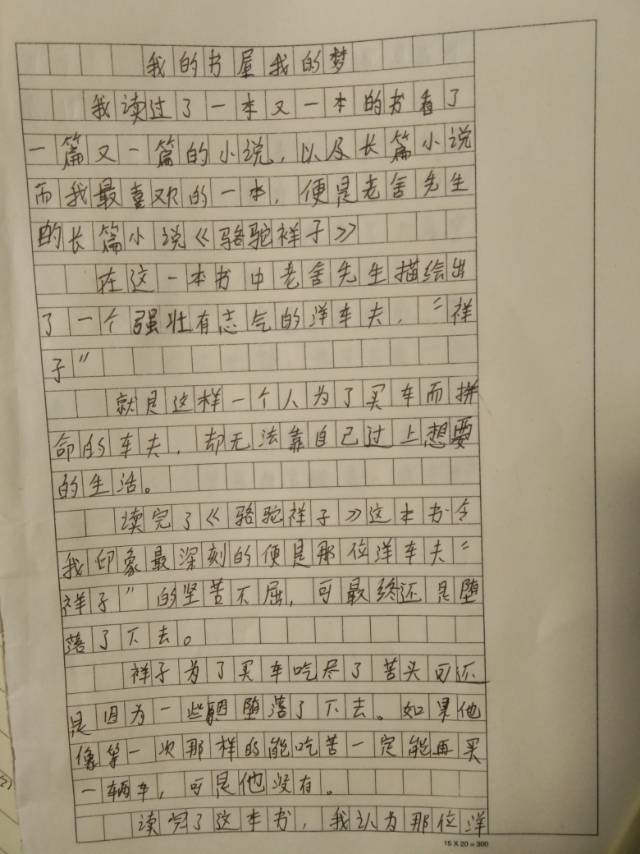 我的书屋我的梦
我读过了一本又一本的书看了
一篇又一篇的小说，以及长篇小说
而我最喜欢的一本，便是老舍先生
的长篇小说《骆驼祥子》
在这一本书中老舍先生描绘出
了一个强壮有志气的洋车夫，“祥
子”
就是这样一个人为了买车而拼
命的车夫，却无法靠自己过上想要
的生活。
读完了《骆驼祥子》这本书令
我印象最深刻的便是那位洋车夫“
祥子”的坚苦不屈，可最终还是堕
落了下去。
祥子为了买车吃尽了苦头可还
是因为一些堕落了下去。如果他
像第一次那样的能吃苦一定能再买
一辆车，可是他没有。
读完了这本书，我认为那位洋
15 X 20 = 300